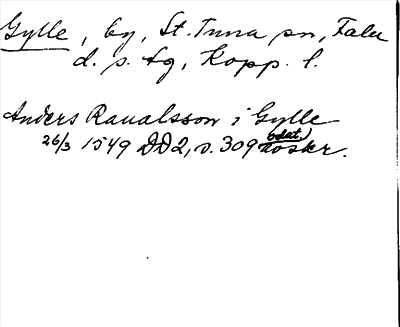 Gylle, by, St. Tuna sn, Falu
d. s. tg, Kopp. l.
Anders Raualsson i Gylle
26/3 1549 DD2, s. 309 (odat.) avskr.